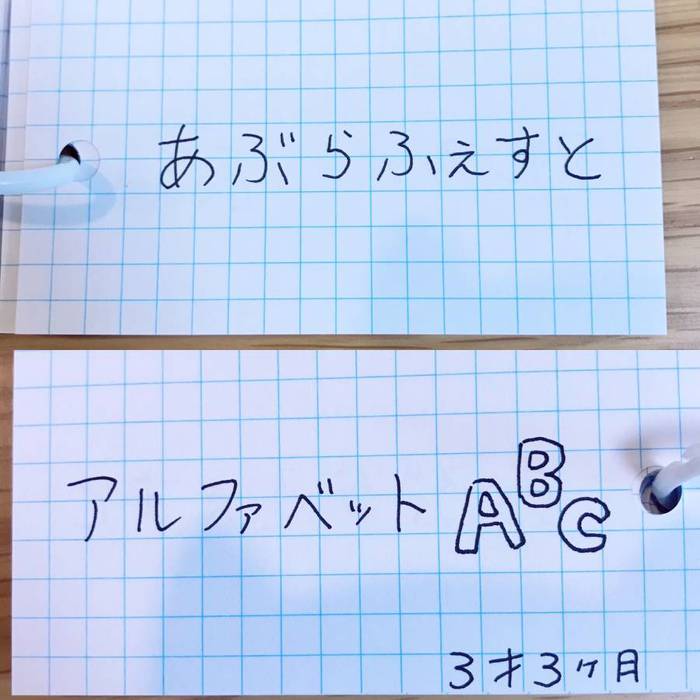 あぶらふぇすと
アルファベット ABC
3才3ヶ月